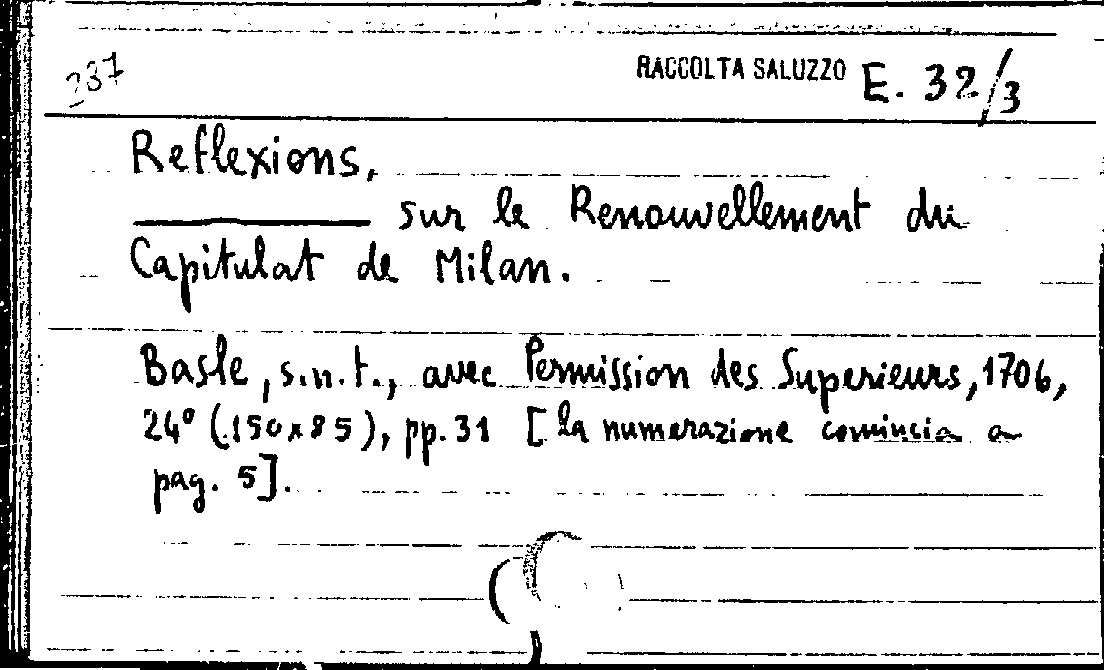 237
RACCOLTA SALUZZO E. 32/3
Reflexions,
sur le Renouvellement du
Capitulat de Milan.
Basle, s.n.t., avec Permission des Superieurs, 1706,
24° (150x85), pp. 31 [la numerazione comincia a
pag. 5].